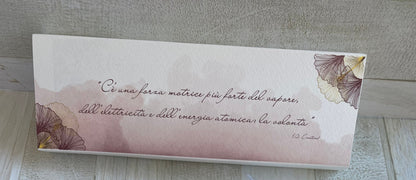 "C'è una forza motrice più forte del vapore,
dell'elettricità e dell'energia atomica: la volontà"